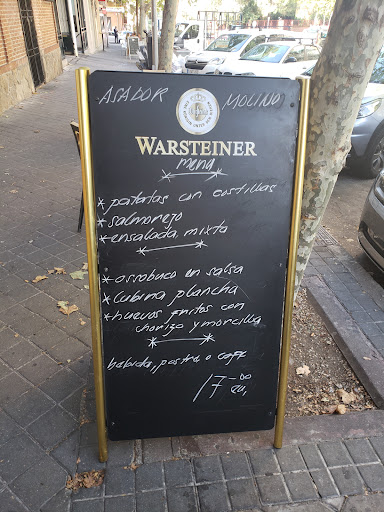 ASADOR MOLINO
WARSTEINER
menu
* patatas con costillas
* salmorejo
* ensalada mixta
* ossobuco en salsa
* lubina plancha
* huevos fritos con
chorizo y morcilla
bebida, postre o café
17-00